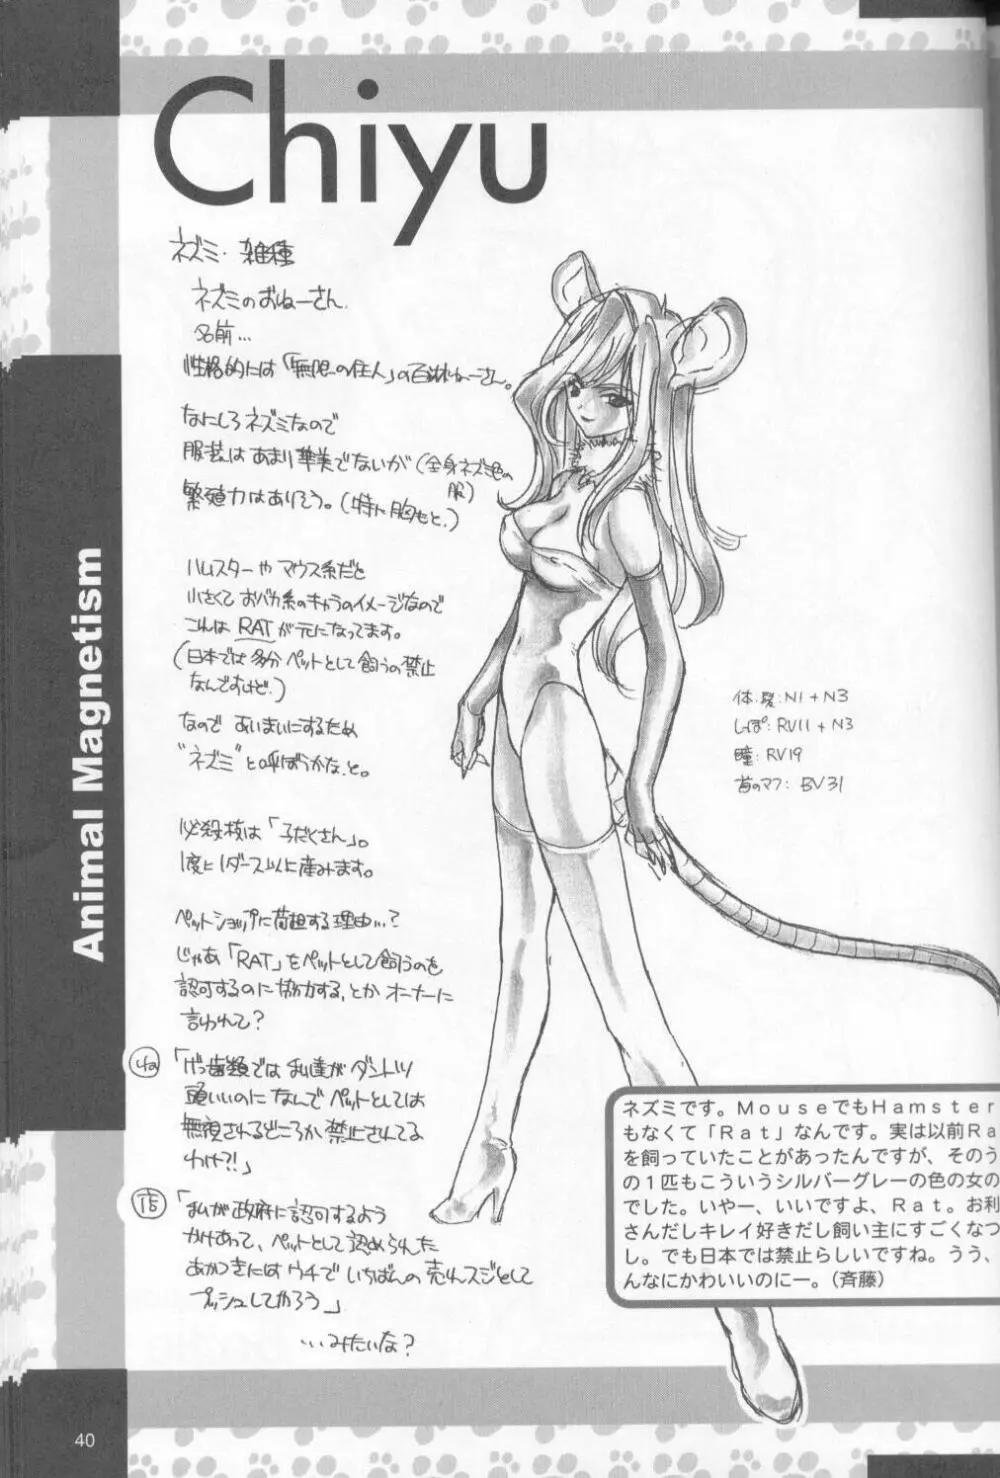 Chiyu
ネズミ・雑種
ネズミのおねーさん。
名前…
性格的には「無限の住人」の百淋ねーさん。
なにしろネズミなので
服装はあまり華美でないが(全身ネズミ色の服)
繁殖力はありそう。(特に胸もと。)
ハムスターやマウス系だと
小さくておバカ系のキャラのイメージなので
これはRATが元になってます。
(日本では多分ペットとして飼うの禁止
なんですけど。)
なので あいまいにするため
"ネズミ"と呼ぼうかな、と。
必殺技は「子だくさん」。
1度に1ダース以上産みます。
ペットショップに荷担する理由…?
じゃあ「RAT」をペットとして飼うのを
認可するのに協力する、とかオーナーに
言われて?
ね「げっ歯類では私達がダントツ
頭いいのになんでペットとしては
無視されるどころか禁止されてる
わけ?!」
店「私が政府に認可するよう
かけあって、ペットとして認められた
あかつきにはウチでいちばんの売れスジとして
プッシュしてやろう」
…みたいな?
体、髪:N1+N3
しっぽ:RV11+N3
瞳:RV19
首のマフ:BV31
ネズミです。MouseでもHamster
もなくて「Rat」なんです。実は以前Ra
を飼っていたことがあったんですが、そのう
の1匹もこういうシルバーグレーの色の女の
でした。いやー、いいですよ、Rat。お利
さんだしキレイ好きだし飼い主にすごくなつ
し。でも日本では禁止らしいですね。うう、
んなにかわいいのにー。(斉藤)
Animal Magnetism
40